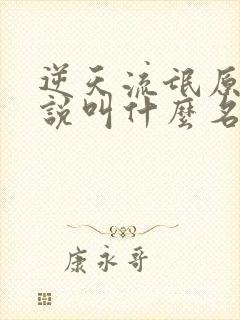 逆天流氓原
說叫什麼名
康永哥